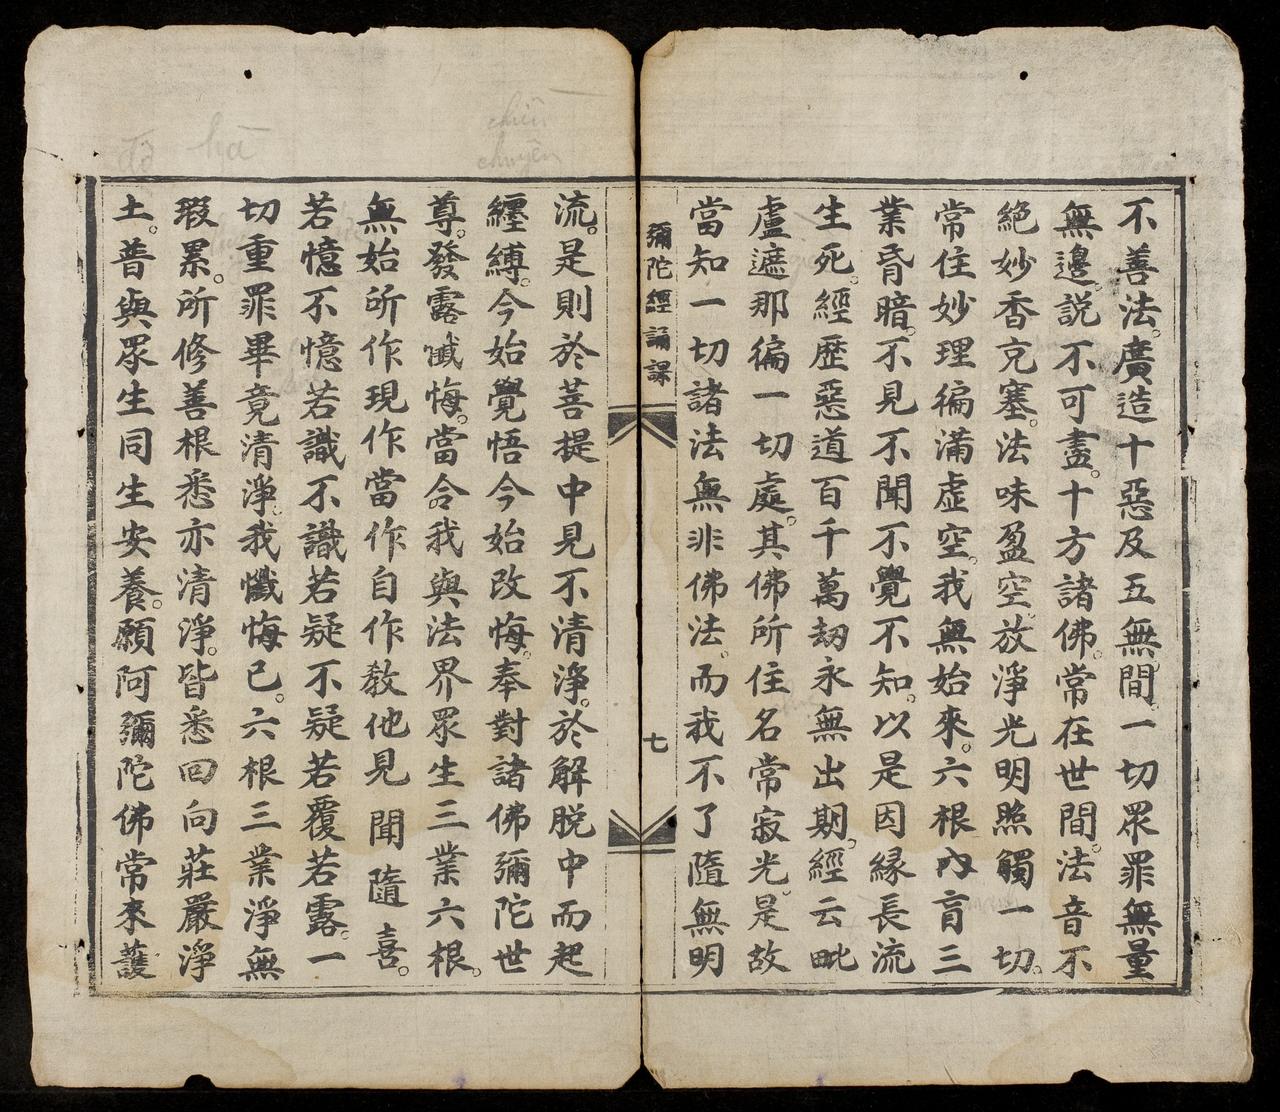 不善法。廣造十惡及五無間。一切眾罪無量
無邊。説不可盡。十方諸佛。常在世間。法音不
絶妙香充塞。法味盈空。放淨光明照觸一切。
常住妙理徧滿虛空。我無始來。六根內盲三
業昏暗。不見不聞不覺不知。以是因緣長流
生死。經歷惡道百千萬劫永無出期。經云毗
盧遮那徧一切處。其佛所住名常寂光。是故
當知一切諸法無非佛法。而我不了隨無明
彌陀經誦課
七
流。是則於菩提中見不清淨。於解脫中而起
纏縛。今始覺悟今始改悔。奉對諸佛彌陀世
尊。發露懺悔。當合我與法界眾生三業六根。
無始所作現作當作自作教他見聞隨喜。
若憶不憶若識不識若疑不疑若覆若露。一
切重罪畢竟清淨。我懺悔已。六根三業淨無
瑕累。所修善根悉亦清淨。皆悉回向莊嚴淨
土。普與眾生同生安養。願阿彌陀佛常來護
chiền
chuyền
hà